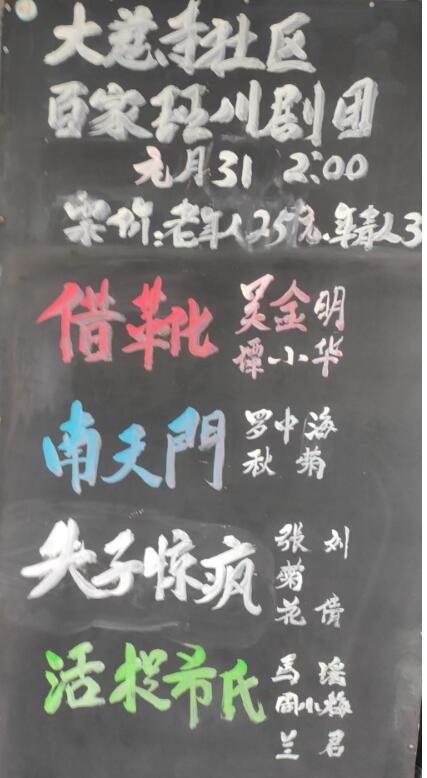 大慈寺社区
百家班川剧团
元月31 2:00
票价:老年人25元.年青人3
借靴 吴金明
谭小华
南天門 罗中海
秋菊
失子惊疯 张菊花 刘倩
活捉希氏 馬 瑤
周小梅
兰君